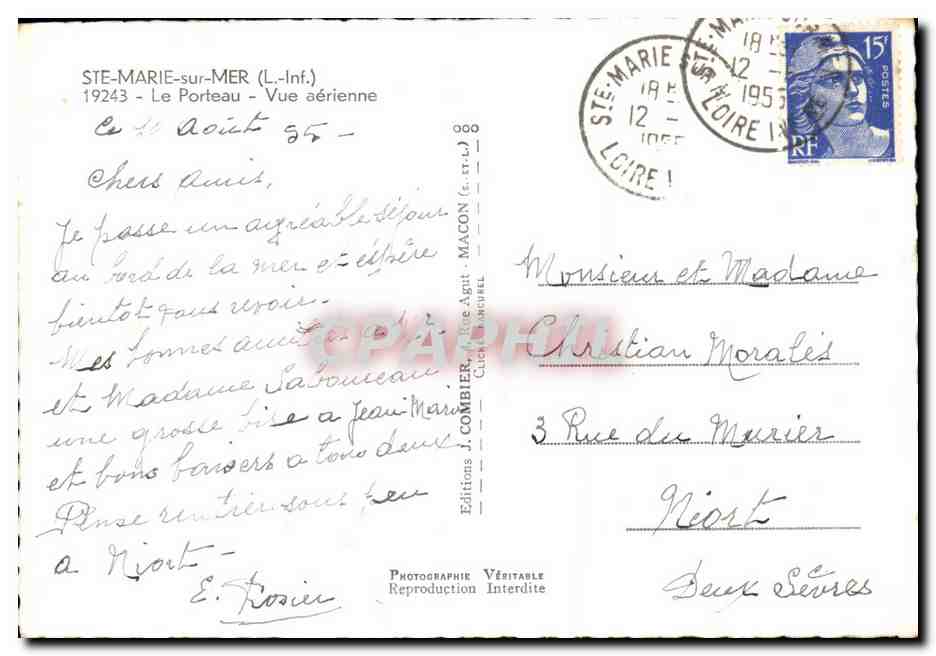 STE-MARIE-sur-MER (L.-Inf.)
19243 - Le Porteau - Vue aérienne
Ce Août 55 -
Chers amis,
Je passe un agréable séjour
au bord de la mer et espère
bientôt vous revoir.
Mes bonnes amitiés à
et Madame
une grosse bise a Jean Marie
et bons baisers a tous deux
Pense rentrer sous peu
a Niort -
E. Rosier
Editions J. COMBIER, 4 Rue Agut - MACON (S.-ET-L.)
CLICHÉ RANCUREL
CPARAMA
PHOTOGRAPHIE VÉRITABLE
Reproduction Interdite
STE-MARIE S
18 H
12 -
1955
LOIRE I
STE-MARIE SUR M
18 H
12 -
1955
LOIRE
15F
POSTES
RF
Monsieur et Madame
Christian Moralès
3 Rue du Murier
Niort
Deux Sèvres